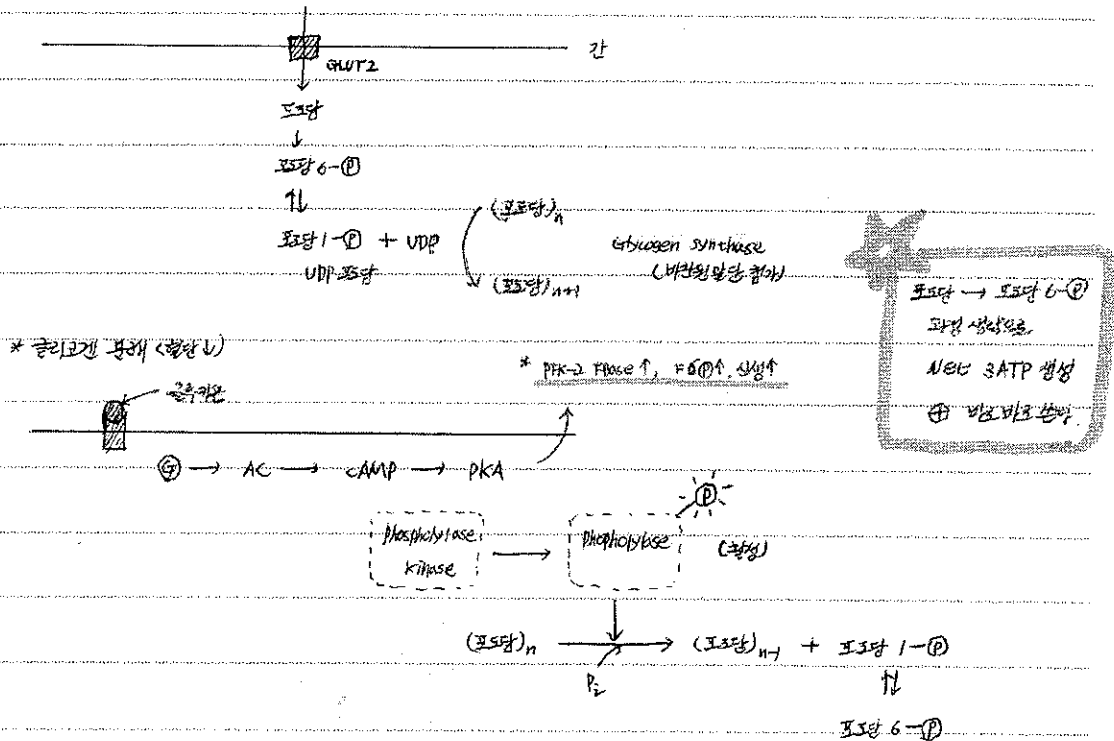 간
GLUT2
포도당
↓
포도당 6-Ⓟ
⇅
포도당 1-Ⓟ + UDP
UDP-포도당
(포도당)n
(포도당)n+1
Glycogen synthase
(비환원말단 첨가)
포도당 → 포도당 6-Ⓟ
과정 생략으로
NET 3ATP 생성
⊕ 바로바로
* 글리코겐 분해 (혈당↓)
글루카곤
* PFK-2 ↑, ↑, ↑
Ⓖ → AC → cAMP → PKA
Ⓟ
phospholylase
kinase
→
phopholylase
(활성)
(포도당)n → (포도당)n-1 + 포도당 1-Ⓟ
Pi
⇅
포도당 6-Ⓟ